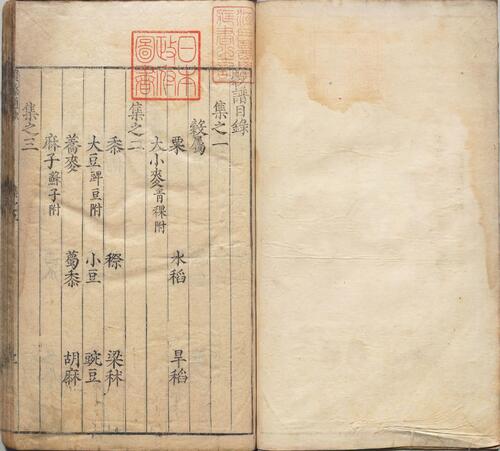 穀譜目錄
集之一
穀屬
粟 水稻 旱稻
大小麥青稞附
集之二
黍 穄 梁秫
大豆豍豆附 小豆 豌豆
蕎麥 薥黍 胡麻
麻子蘇子附
集之三
日本
政府
圖書